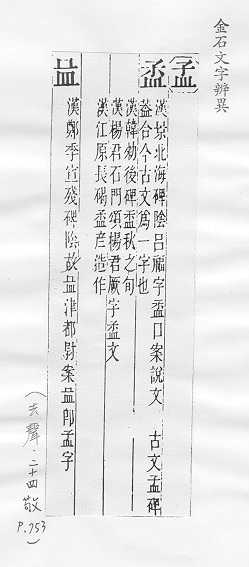 金石文字辨異
孟
盃
漢景北海碑陰呂福字盃口案說文 古文孟碑
蓋合今古文爲一字也
漢韓勑後碑盃秋之旬
漢楊君石門頌楊君厥字盃文
漢江原長碣盃彥造作
漢鄭季宣殘碑陰故 津都尉案 卽孟字
(去聲．二十四敬
P.753)